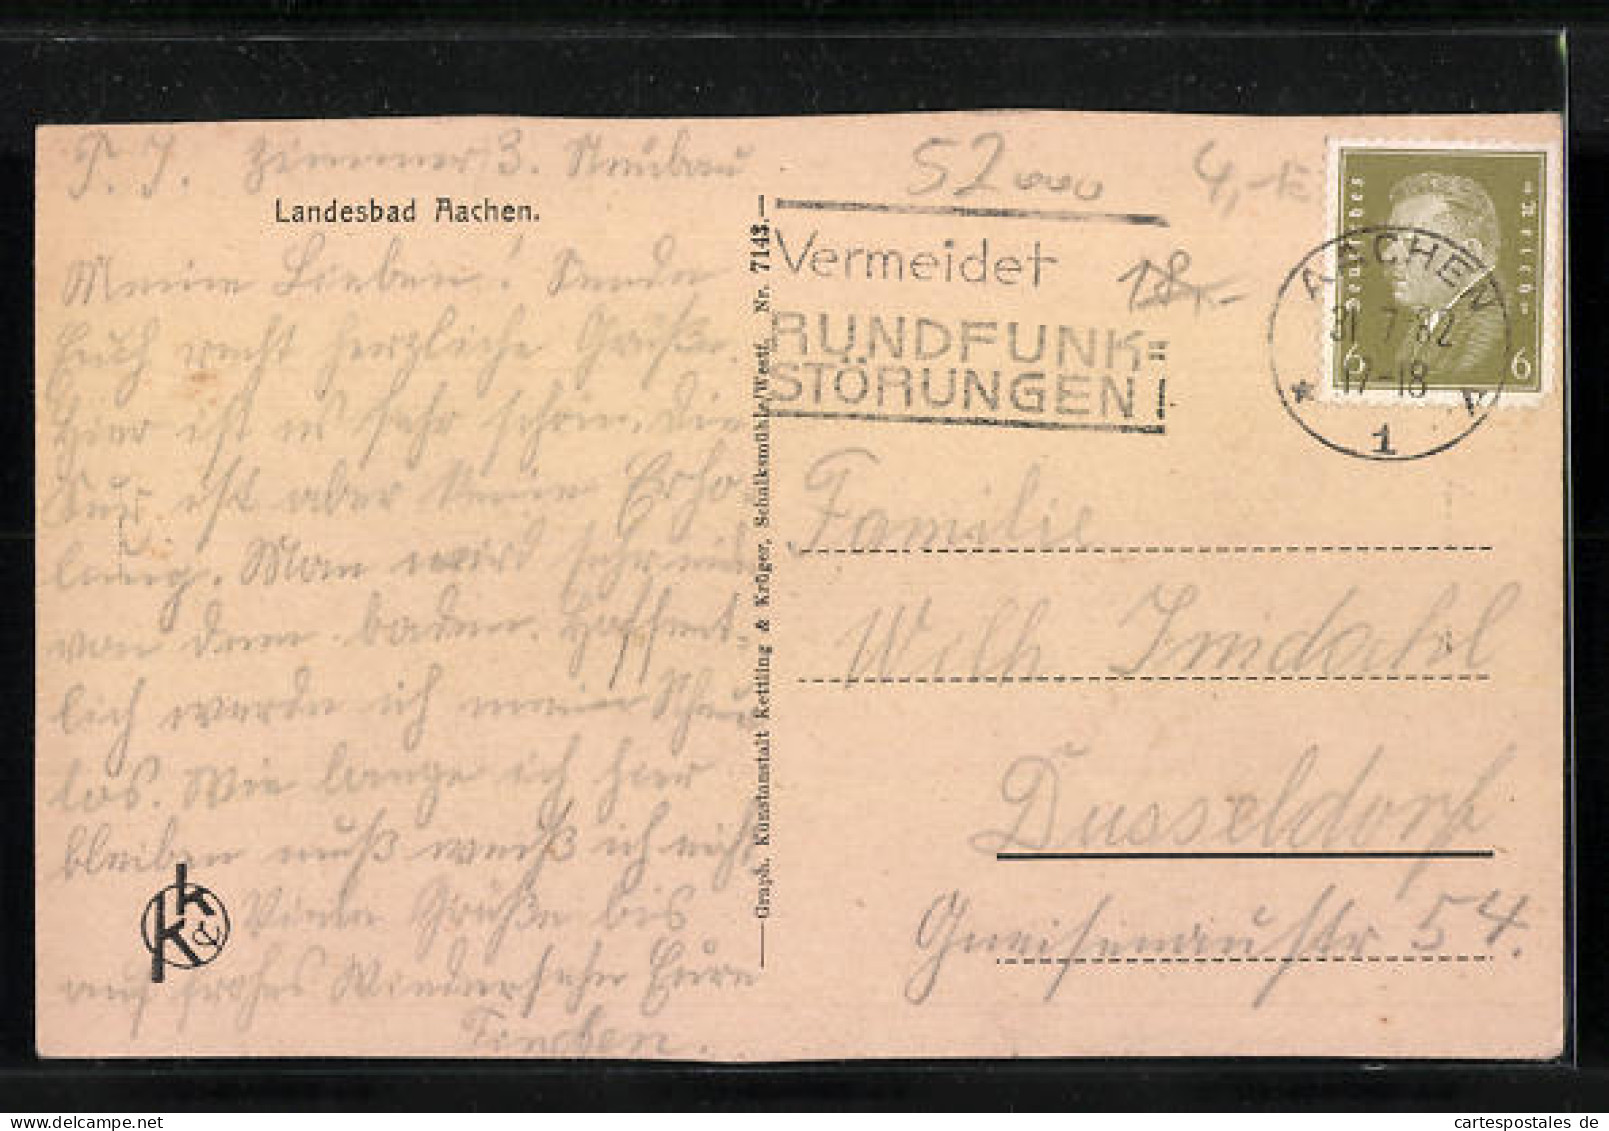 P. J. Zimmer 3. Neubau
Landesbad Aachen.
Meine Lieben! Sende
Euch recht herzliche Grüße
hier ist es sehr schön. Die
Kur ist aber keine Erho
lung. Man wird sehr müd
von dem baden. Hoffent
lich werde ich meine
los. Wie lange ich hier
bleiben muß weiß ich nicht
Viele Grüße bis
auf frohes Wiedersehn Eure
Finchen.
Graph. Kunstanstalt Kettling & Krüger, Schalksmühle/Westf. Nr. 7143.
K & K
52000
4,-
18,-
Vermeidet
RUNDFUNK=
STÖRUNGEN!
Deutsches Reich
6 6
AACHEN
31.7.32
17-18
* 1
Familie
Wilh. Imdahl
Düsseldorf
Gneisenaustr 54.
cartespostales de